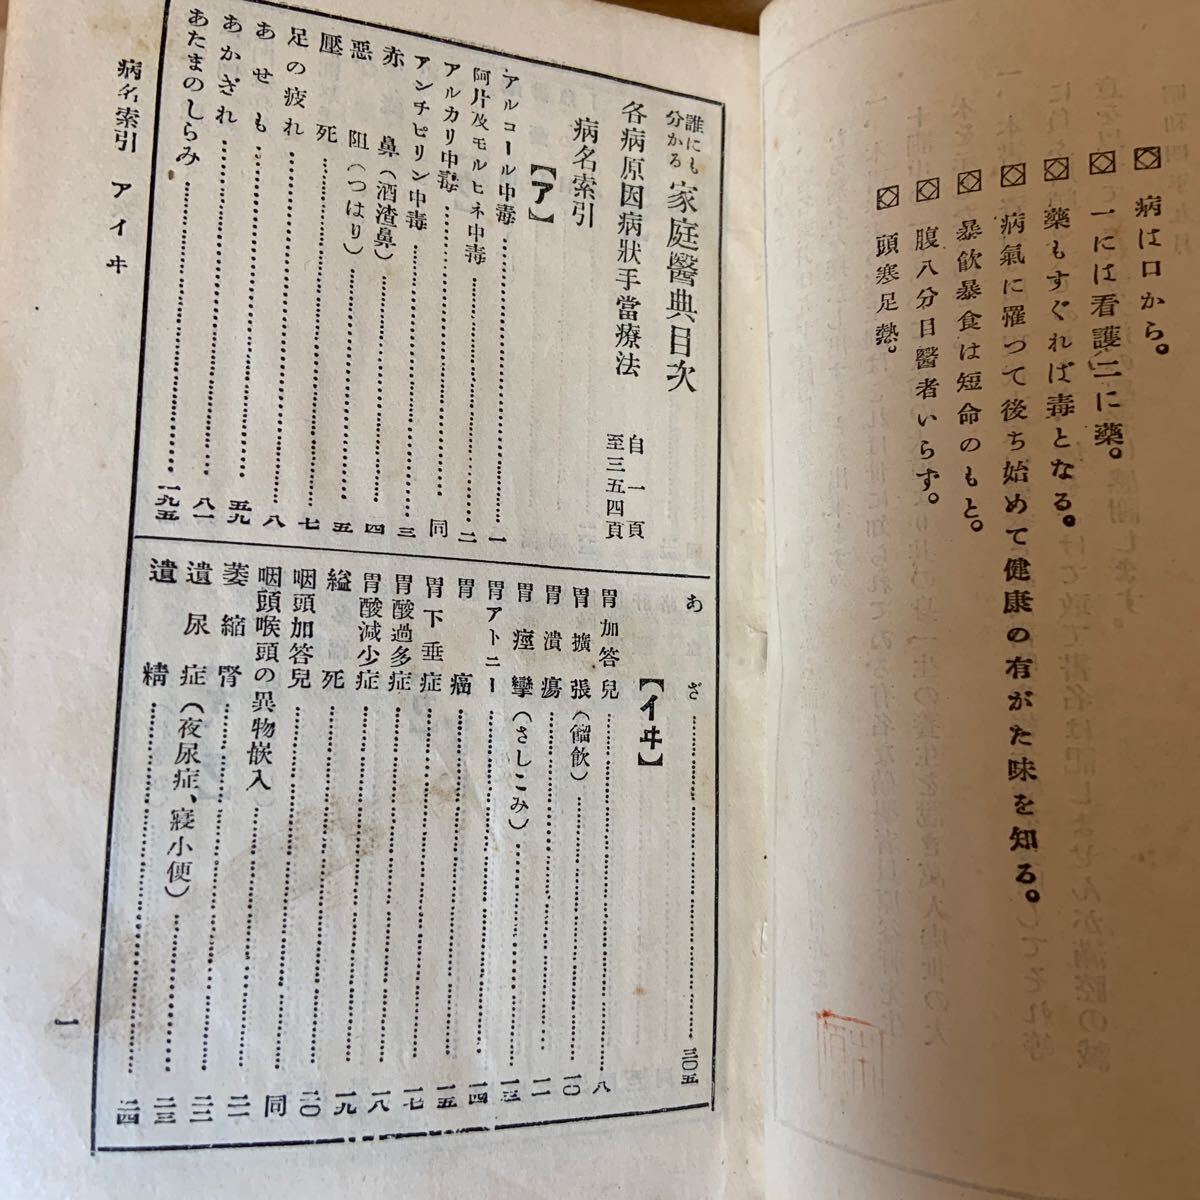 病は口から。
一には看護二に藥。
藥もすぐれば毒となる。
病氣に罹つて後ち始めて健康の有がた味を知る。
暴飮暴食は短命のもと。
腹八分目醫者いらず。
頭寒足熱。
誰にも分かる 家庭醫典目次
各病原因病狀手當療法 自一頁 至三五四頁
病名索引
【ア】
アルコール中毒 一
阿片及モルヒネ中毒 二
アルカリ中毒 同
アンチピリン中毒 三
赤鼻(酒渣鼻) 四
惡阻(つはり) 五
壓死 七
足の疲れ 八
あせも 五九
あかぎれ 八一
あたまのしらみ 一九五
あざ 三〇五
【イヰ】
胃加答兒 八
胃擴張(餾飮) 一〇
胃潰瘍 一一
胃痙攣(さしこみ) 一三
胃アトニー 一四
胃癌 一五
胃下垂症 一七
胃酸過多症 一八
胃酸減少症 一九
縊死 二〇
咽頭加答兒 同
咽頭喉頭の異物嵌入 二一
萎縮腎 二二
遺尿症(夜尿症、寢小便) 二三
遺精 二四
病名索引 アイヰ
一